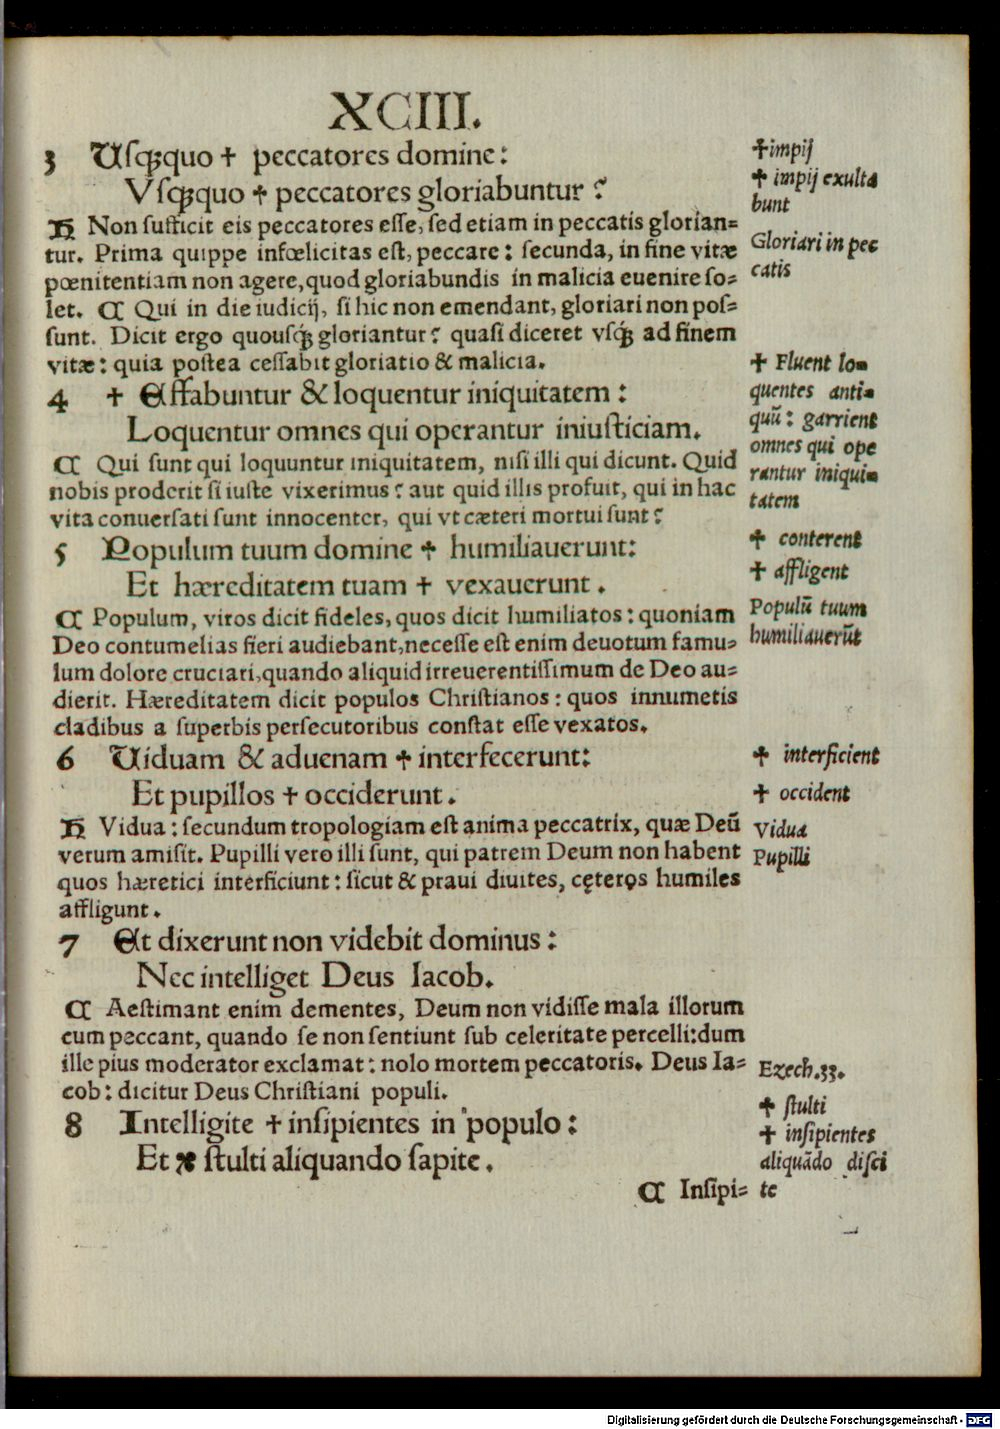 XCIII.
3 Uſqꝫquo ✝ peccatores domine:
Vſqꝫquo ✝ peccatores gloriabuntur?
H Non sufficit eis peccatores eſſe, ſed etiam in peccatis glorian=
tur. Prima quippe infœlicitas eſt, peccare: ſecunda, in fine vitæ
pœnitentiam non agere, quod gloriabundis in malicia euenire ſo=
let. C Qui in die iudicij, ſi hic non emendant, gloriari non poſ=
ſunt. Dicit ergo quouſqꝫ gloriantur? quaſi diceret vſqꝫ ad finem
vitæ: quia poſtea ceſſabit gloriatio & malicia.
4 ✝ Effabuntur & loquentur iniquitatem:
Loquentur omnes qui operantur iniuſticiam.
C Qui ſunt qui loquuntur iniquitatem, niſi illi qui dicunt. Quid
nobis proderit ſi iuſte vixerimus? aut quid illis profuit, qui in hac
vita conuerſati ſunt innocenter, qui vt cæteri mortui ſunt?
5 Populum tuum domine ✝ humiliauerunt:
Et hæreditatem tuam ✝ vexauerunt.
C Populum, viros dicit fideles, quos dicit humiliatos: quoniam
Deo contumelias fieri audiebant, neceſſe eſt enim deuotum famu=
lum dolore cruciari, quando aliquid irreuerentiſſimum de Deo au=
dierit. Hæreditatem dicit populos Chriſtianos: quos innumetis
cladibus a ſuperbis perſecutoribus conſtat eſſe vexatos.
6 Uiduam & aduenam ✝ interfecerunt:
Et pupillos ✝ occiderunt.
H Vidua: ſecundum tropologiam eſt anima peccatrix, quæ Deū
verum amiſit. Pupilli vero illi ſunt, qui patrem Deum non habent
quos hæretici interficiunt: ſicut & praui diuites, cęteros humiles
affligunt.
7 Et dixerunt non videbit dominus:
Nec intelliget Deus Iacob.
C Aeſtimant enim dementes, Deum non vidiſſe mala illorum
cum peccant, quando ſe non ſentiunt ſub celeritate percelli: dum
ille pius moderator exclamat: nolo mortem peccatoris. Deus Ia=
cob: dicitur Deus Chriſtiani populi.
8 Intelligite ✝ inſipientes in populo:
Et ✠ ſtulti aliquando ſapite.
C Inſipi=
✝ impij
✝ impij exulta
bunt
Gloriari in pec
catis
✝ Fluent lo=
quentes anti=
quū: garrient
omnes qui ope
rantur iniqui=
tatem
✝ conterent
✝ affligent
Populū tuum
humiliauerūt
✝ interficient
✝ occident
Vidua
Pupilli
Ezech.33.
✝ ſtulti
✝ inſipientes
aliquādo diſci
te
Digitalisierung gefördert durch die Deutsche Forschungsgemeinschaft - DFG